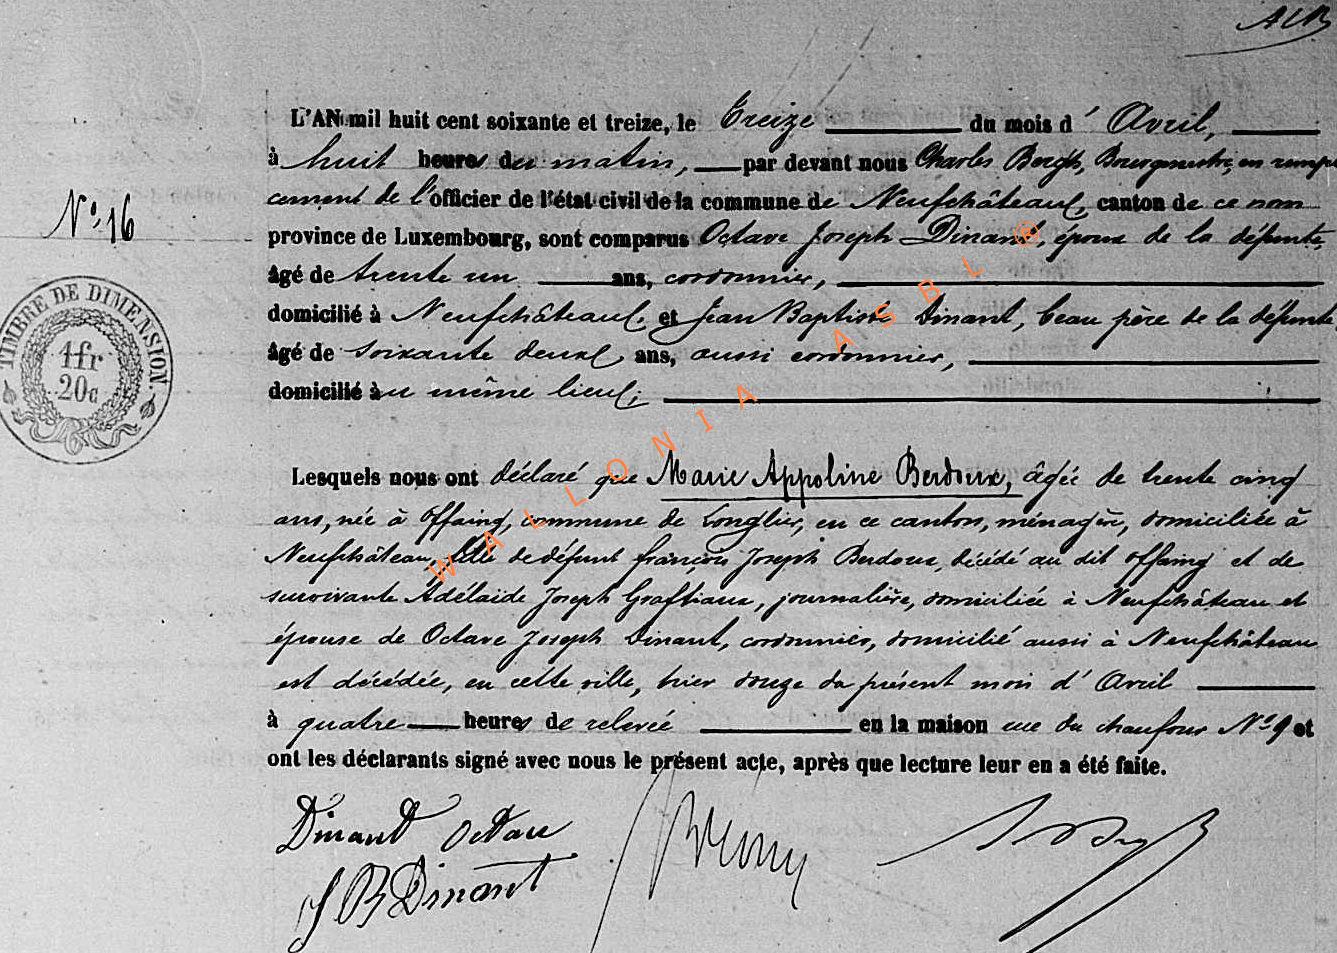 ACB
L'AN mil huit cent soixante et treize, le Treize du mois d' Avril,
à huit heures du matin, par devant nous Charles Bergh, Bourgmestre, en rempla
cement de l'officier de l'état civil de la commune de Neufchâteau, canton de ce nom
N° 16
province de Luxembourg, sont comparus Octave Joseph Dinant, époux de la défunte
âgé de trente un ans, cordonnier,
domicilié à Neufchâteau, et Jean Baptiste Dinant, beau père de la défunte
âgé de soixante deux ans, aussi cordonnier,
domicilié au même lieu,
TIMBRE DE DIMENSION.
1fr
20c
Lesquels nous ont déclaré que Marie Appoline Berdoux, âgée de trente cinq
ans, née à Offaing, commune de Longlier, en ce canton, ménagère, domiciliée à
Neufchâteau, fille de défunt françois Joseph Berdoux, décédé au dit Offaing et de
survivante Adélaide Joseph Graftiaux, journalière, domiciliée à Neufchâteau et
épouse de Octave Joseph Dinant, cordonnier, domicilié aussi à Neufchâteau
est décédée, en cette ville, hier douze du présent mois d' Avril
à quatre heures de relevée en la maison rue du chaufour N° 9 et
ont les déclarants signé avec nous le présent acte, après que lecture leur en a été faite.
Dinant Octave
J B Dinant
WALLONIA ASBL ®